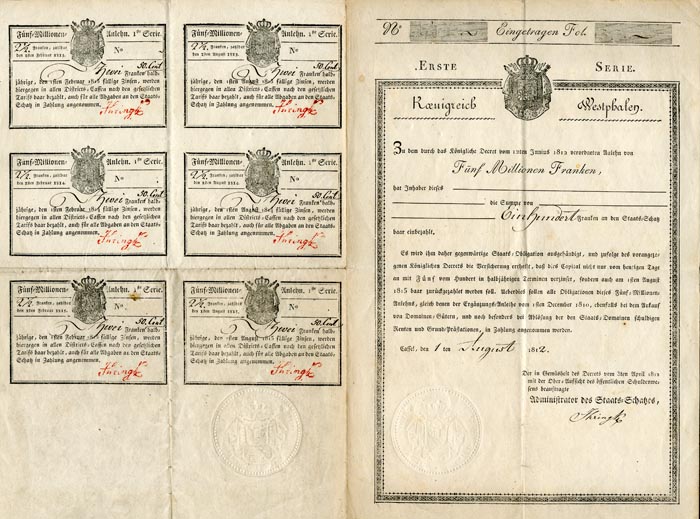 Fünf-Millionen- Anlehn. 1te Serie.
2½ Franken, zahlbar
den 1sten Februar 1813.
No
Zwei 50. Cent
Franken halb-
jährige, den 1sten Februar 1813 fällige Zinsen, werden
hiergegen in allen Districts-Cassen nach den gesetzlichen
Tarifs baar bezahlt, auch für alle Abgaben an den Staats-
Schatz in Zahlung angenommen.
Fünf-Millionen- Anlehn. 1te Serie.
2½ Franken, zahlbar
den 1sten August 1813.
No
Zwei 50. Cent
Franken halb-
jährige, den 1sten August 1813 fällige Zinsen, werden
hiergegen in allen Districts-Cassen nach den gesetzlichen
Tarifs baar bezahlt, auch für alle Abgaben an den Staats-
Schatz in Zahlung angenommen.
Fünf-Millionen- Anlehn. 1te Serie.
2½ Franken, zahlbar
den 1sten Februar 1814.
No
Zwei 50. Cent
Franken halb-
jährige, den 1sten Februar 1814 fällige Zinsen, werden
hiergegen in allen Districts-Cassen nach den gesetzlichen
Tarifs baar bezahlt, auch für alle Abgaben an den Staats-
Schatz in Zahlung angenommen.
Fünf-Millionen- Anlehn. 1te Serie.
2½ Franken, zahlbar
den 1sten August 1814.
No
Zwei 50. Cent
Franken halb-
jährige, den 1sten August 1814 fällige Zinsen, werden
hiergegen in allen Districts-Cassen nach den gesetzlichen
Tarifs baar bezahlt, auch für alle Abgaben an den Staats-
Schatz in Zahlung angenommen.
Fünf-Millionen- Anlehn. 1te Serie.
2½ Franken, zahlbar
den 1sten Februar
No
Zwei 50. Cent
Franken halb-
jährige, den 1sten Februar fällige Zinsen, werden
hiergegen in allen Districts-Cassen nach den gesetzlichen
Tarifs baar bezahlt, auch für alle Abgaben an den Staats-
Schatz in Zahlung angenommen.
Fünf-Millionen- Anlehn. 1te Serie.
2½ Franken, zahlbar
den 1sten August
No
Zwei 50. Cent
Franken halb-
jährige, den 1sten August fällige Zinsen, werden
hiergegen in allen Districts-Cassen nach den gesetzlichen
Tarifs baar bezahlt, auch für alle Abgaben an den Staats-
Schatz in Zahlung angenommen.
No Eingetragen Fol.
ERSTE SERIE.
Kœnigreich Westphalen.
Zu dem durch das Königliche Decret vom 12ten Junius 1812 verordneten Anlehn von
Fünf Millionen Franken,
hat Inhaber dieses
die Summe von
Ein Hundert Franken an den Staats-Schatz
baar einbezahlt.
Es wird ihm daher gegenwärtige Staats-Obligation ausgehändigt, und zufolge des vorangezo-
genen Königlichen Decrets die Versicherung ertheilt, daß dies Capital nicht nur vom heutigen Tage
an mit Fünf vom Hundert in halbjährigen Terminen verzinset, sondern auch am 1sten August
1815 baar zurückgezahlt werden soll. Ueberdies sollen alle Obligationen dieses Fünf-Millionen-
Anlehns, gleich denen der Ergänzungs-Anleihe vom 1sten December 1810, ebenfalls bei dem Ankauf
von Domainen-Gütern, und noch besonders bei Ablösung der den Staats-Domainen schuldigen
Renten und Grund-Prästationen, in Zahlung angenommen werden.
Cassel, den 1ten August 1812.
Der in Gemäßheit des Decrets vom 3ten April 1812
mit der Ober-Aufsicht des öffentlichen Schuldenwe-
sens beauftragte
Administrator des Staats-Schatzes,